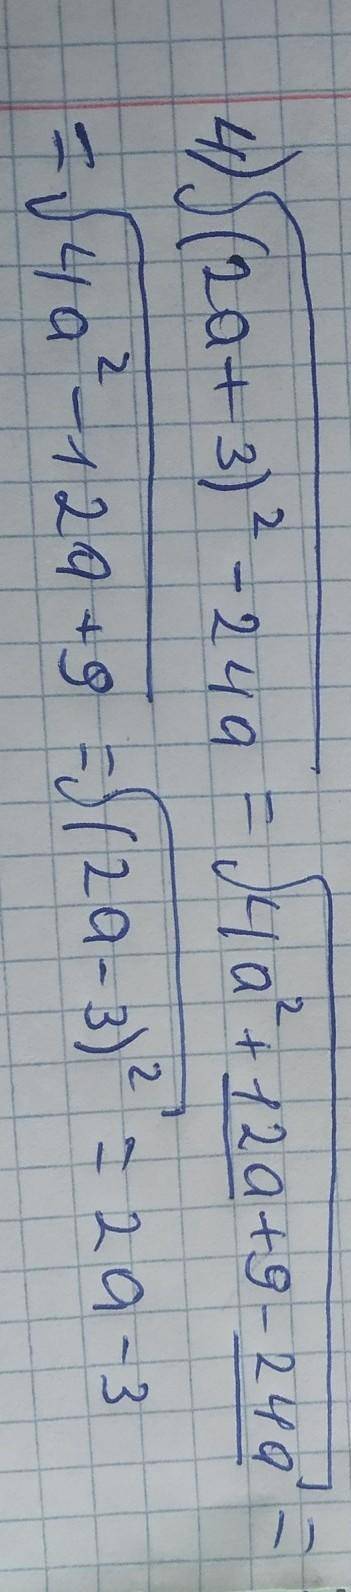 4) √(2a+3)² - 24a = √4a² + 12a + 9 - 24a =
= √4a² - 12a + 9 = √(2a - 3)² = 2a - 3